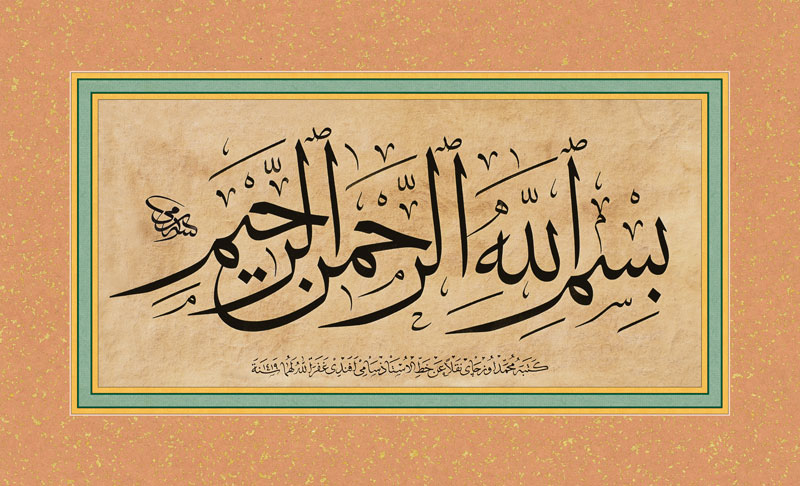 بِسْمِ اللّٰهِ الرَّحْمٰنِ الرَّحِيمِ
سامى
كتبه محمد اوزجاى نقلاً عن خط الاستاذ سامى افندى غفر الله لهما سنة ١٤١٩